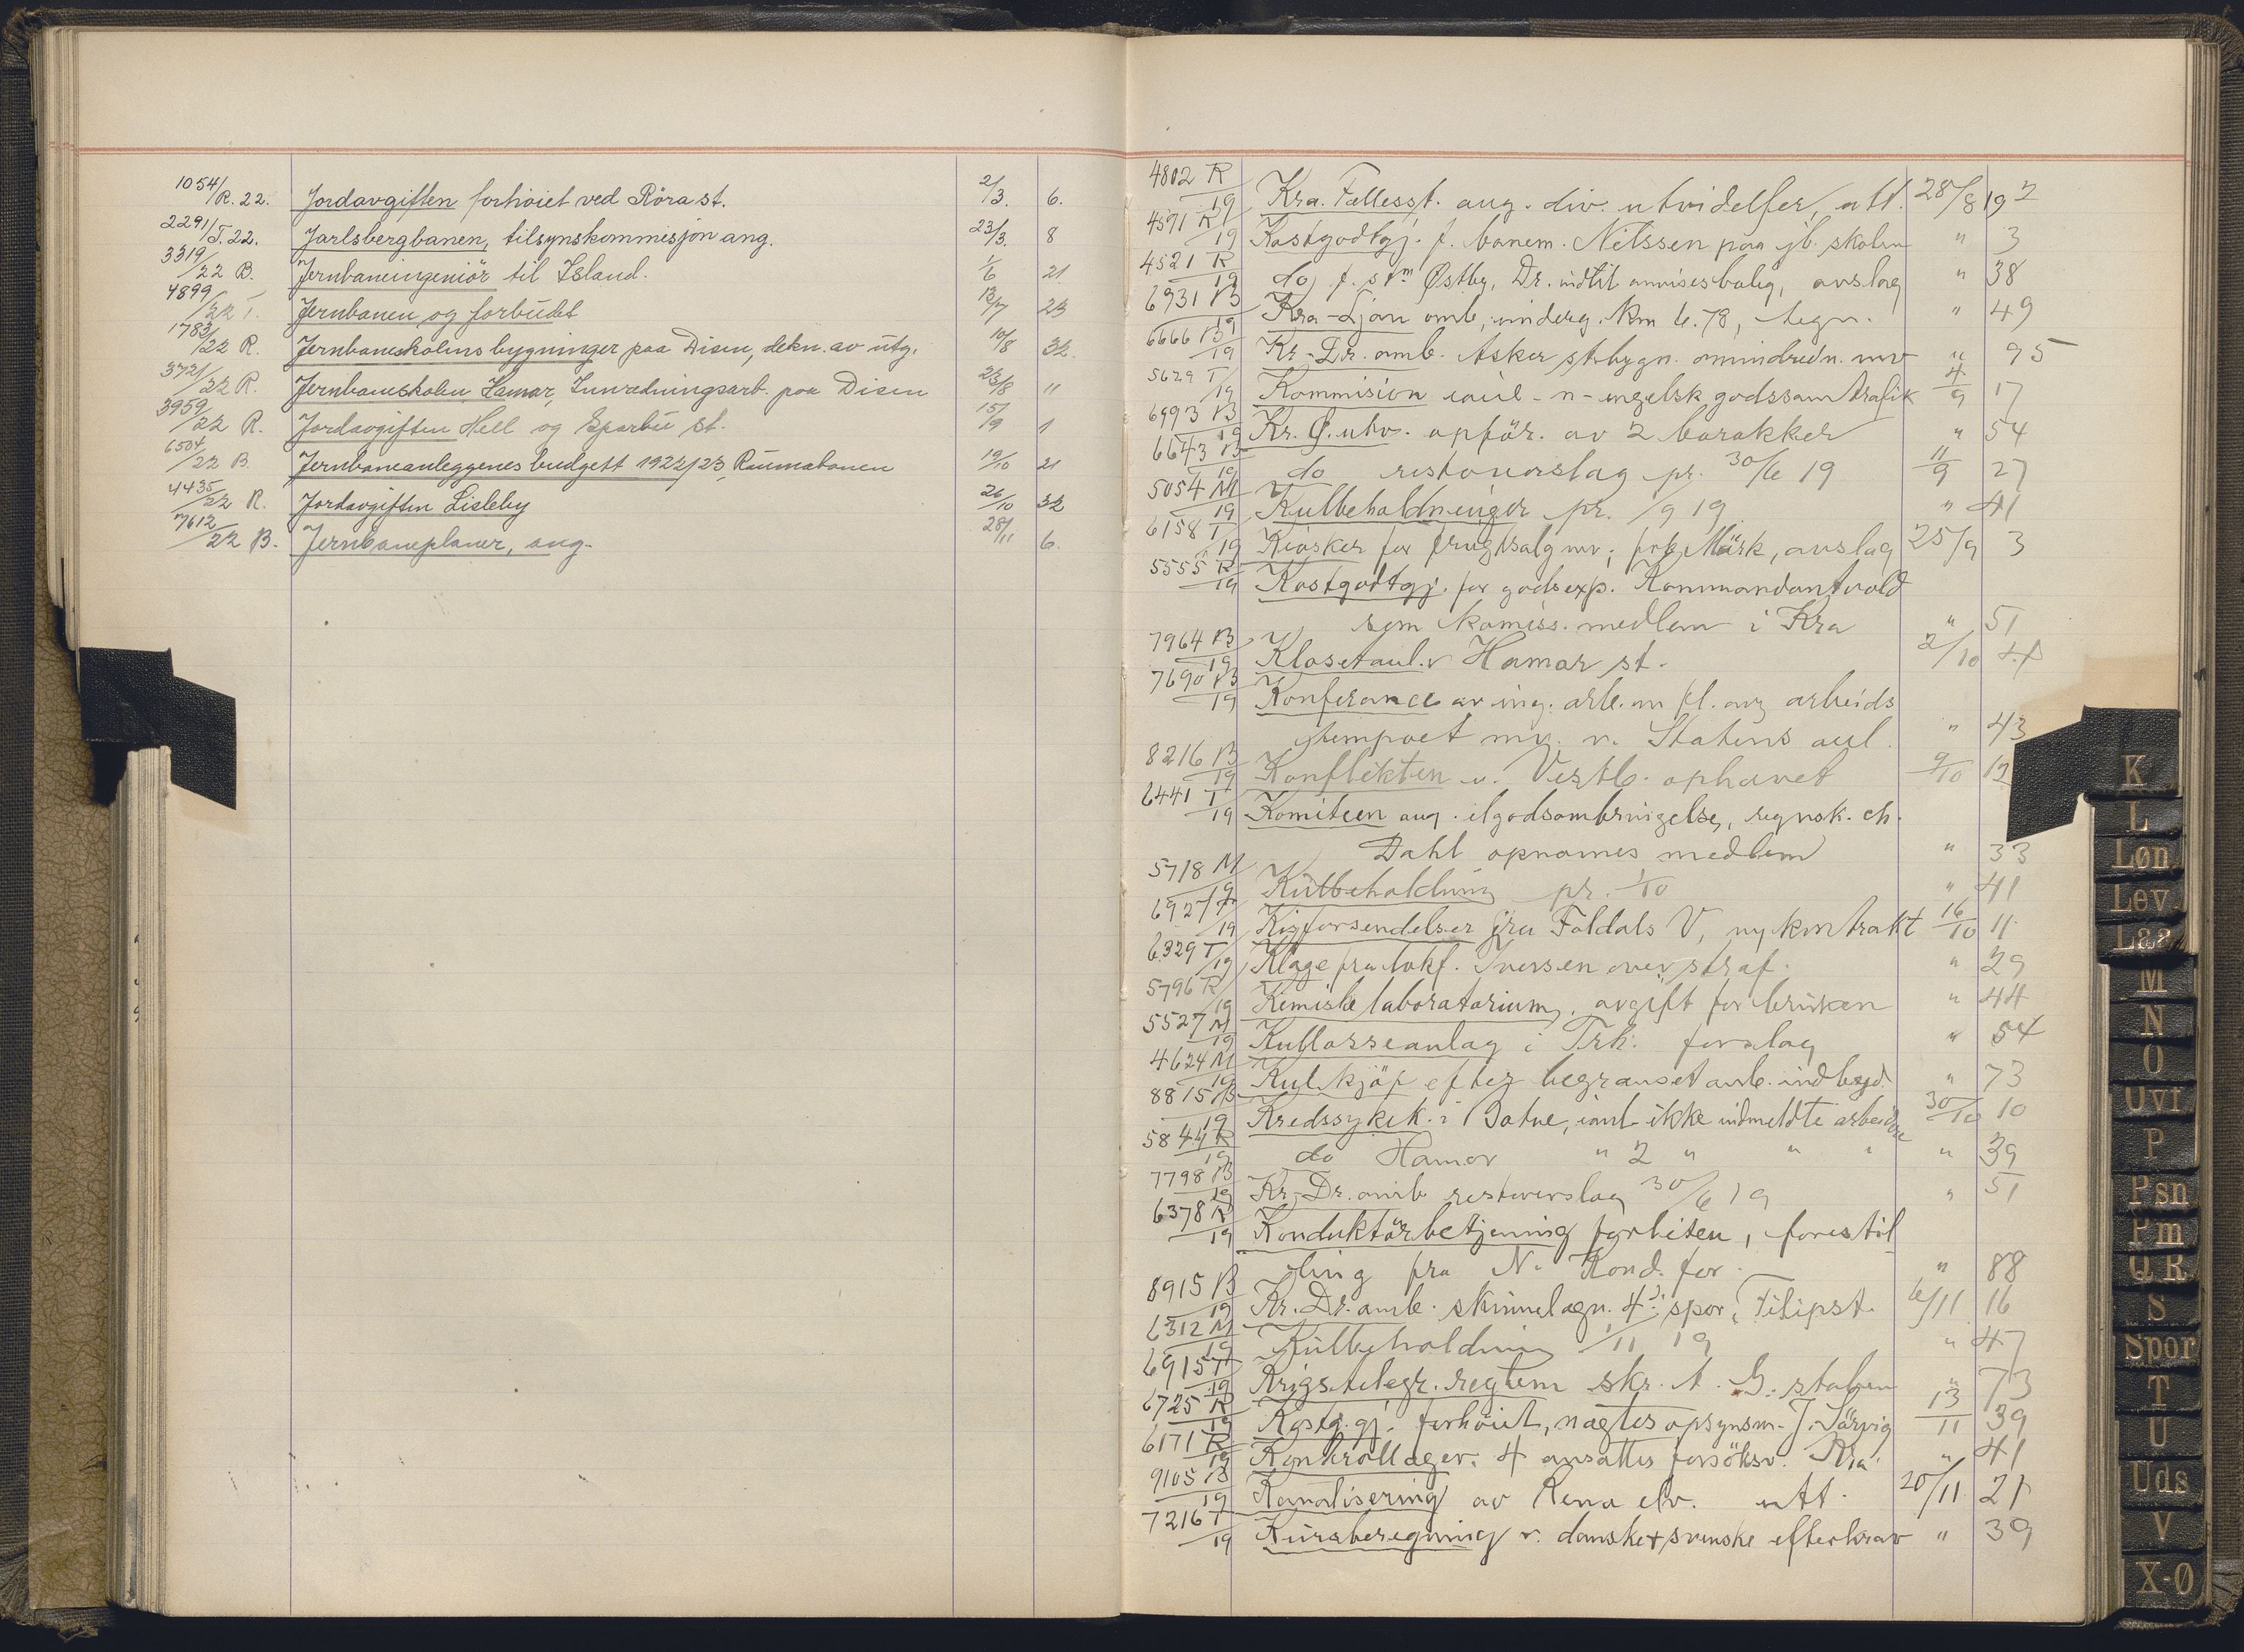 1054/R. 22. Jordavgiften forhöiet ved Röra st. 2/3. 6.
2291/T. 22. Jarlsbergbanen, tilsynskommisjon ang. 23/3. 8
3319/22 B. Jernbaneingeniör til Island. 1/6 21
4899/22 T. Jernbanen og forbudet 13/7 23
1783/22 R. Jernbaneskolens bygninger paa Disen, dekn. av utg. 10/8 32.
3721/22 R. Jernbaneskolen Hamar, Innredningsarb. paa Disen 23/8 11
3959/22 R. Jordavgiften Hell og Sparbu st. 15/9 1
6504/22 B. Jernbaneanleggenes budgett 1922/23 Raumabanen 19/10 21
4435/22 R. Jordavgiften Lisleby 26/10 32
7612/22 B. Jernbaneplaner, ang. 28/11 6.
4802 R/19 Kra. Fællesst. ang. div. utvidelser, utt. 28/8 19
4591 R/19 Kostgodtgj. f. banem. Nilssen paa jb. skolen " 3
4521 R/19 do f. stm Østby, Dr. indtil anvises bolig, avslag " 38
6931 B/19 Kra-Ljan omb, underg. km 6.78, tegn. " 49
6666 B/19 Kr.-Dr. omb. Asker st. bygn. omindredn. mv " 95
5629 T/19 Kommision indl - n - engelsk godssamtrafik 4/9 17
6993 B/19 Kr. Ø. utv. opför. av 2 barakker " 54
6643 B/19 do restoverslag pr. 30/6 19 11/9 27
5054 M/19 Kulbeholdninger pr. /9 19 " 41
6158 T/19 Kiosker for frugtsalg mv, frk Mörk, avslag 25/9 3
5555 R/19 Kostgodtgj. for godsexp. Kommandantvold
som komiss. medlem i Kra " 51
7964 B/19 Klosetanl. v Hamar st. 2/10
7690 B/19 Konferance av ing. arb. m fl. ang arbeids
tempoet mv. v. Statens anl. " 43
8216 B/19 Konflikten v. Vestb. ophævet 9/10 19
6441 T/19 Komiteen ang. ilgodsombringelse, regnsk. ch.
Dahl opnævnes medlem " 33
5718 M/19 Kulbeholdning pr. 1/10 " 41
6927 T/19 Kisforsendelser fra Foldals V, ny kontrakt 16/10 11
6329 T/19 Klage fra lokf. Iversen over straf. " 29
5796 R/19 Kemiske laboratorium, avgift for bruken " 44
5527 M/19 Kullosseanlæg i Trh. forslag " 54
4624 M/19 Kulkjöp efter begrænset anb. indbyd. " 73
8815 B/19 Kredssykek. i Batne, indb ikke indmeldte arbeidere 30/10 10
5844 R/19 do Hamar " 2 " " " " 39
7798 B/19 Kr-Dr. omb restoverslag 30/6 19 " 51
6378 R/19 Konduktörbetjening forliten, forestil
ling fra N. Kond. for. " 88
8915 B/19 Kr. Dr. omb. skinnelægn. 4de spor, Filipst. 6/11 16
6312 M/19 Kulbeholdning 1/11 19 " 47
6915 T/19 Krigstelegr. reglem skr. t. G. staben " 73
6725 R/19 Kostg. gj. forhöiet, nægtes opsynsm. J. Sörvig 13/11 39
6171 R/19 Kontrollager. 4 ansattes forsöksv. Kra. " 41
9105 B/19 Kanalisering av Rena elv. utt. 20/11 21
7216 T/19 Kursberegning v. danske + svenske efterkrav " 39
K
L
Løn
Lev.
Laa
M
N
O
Ovf
P
Psn
Pm
Q R
S
Spor
T
U
Uds
V
X-Ø